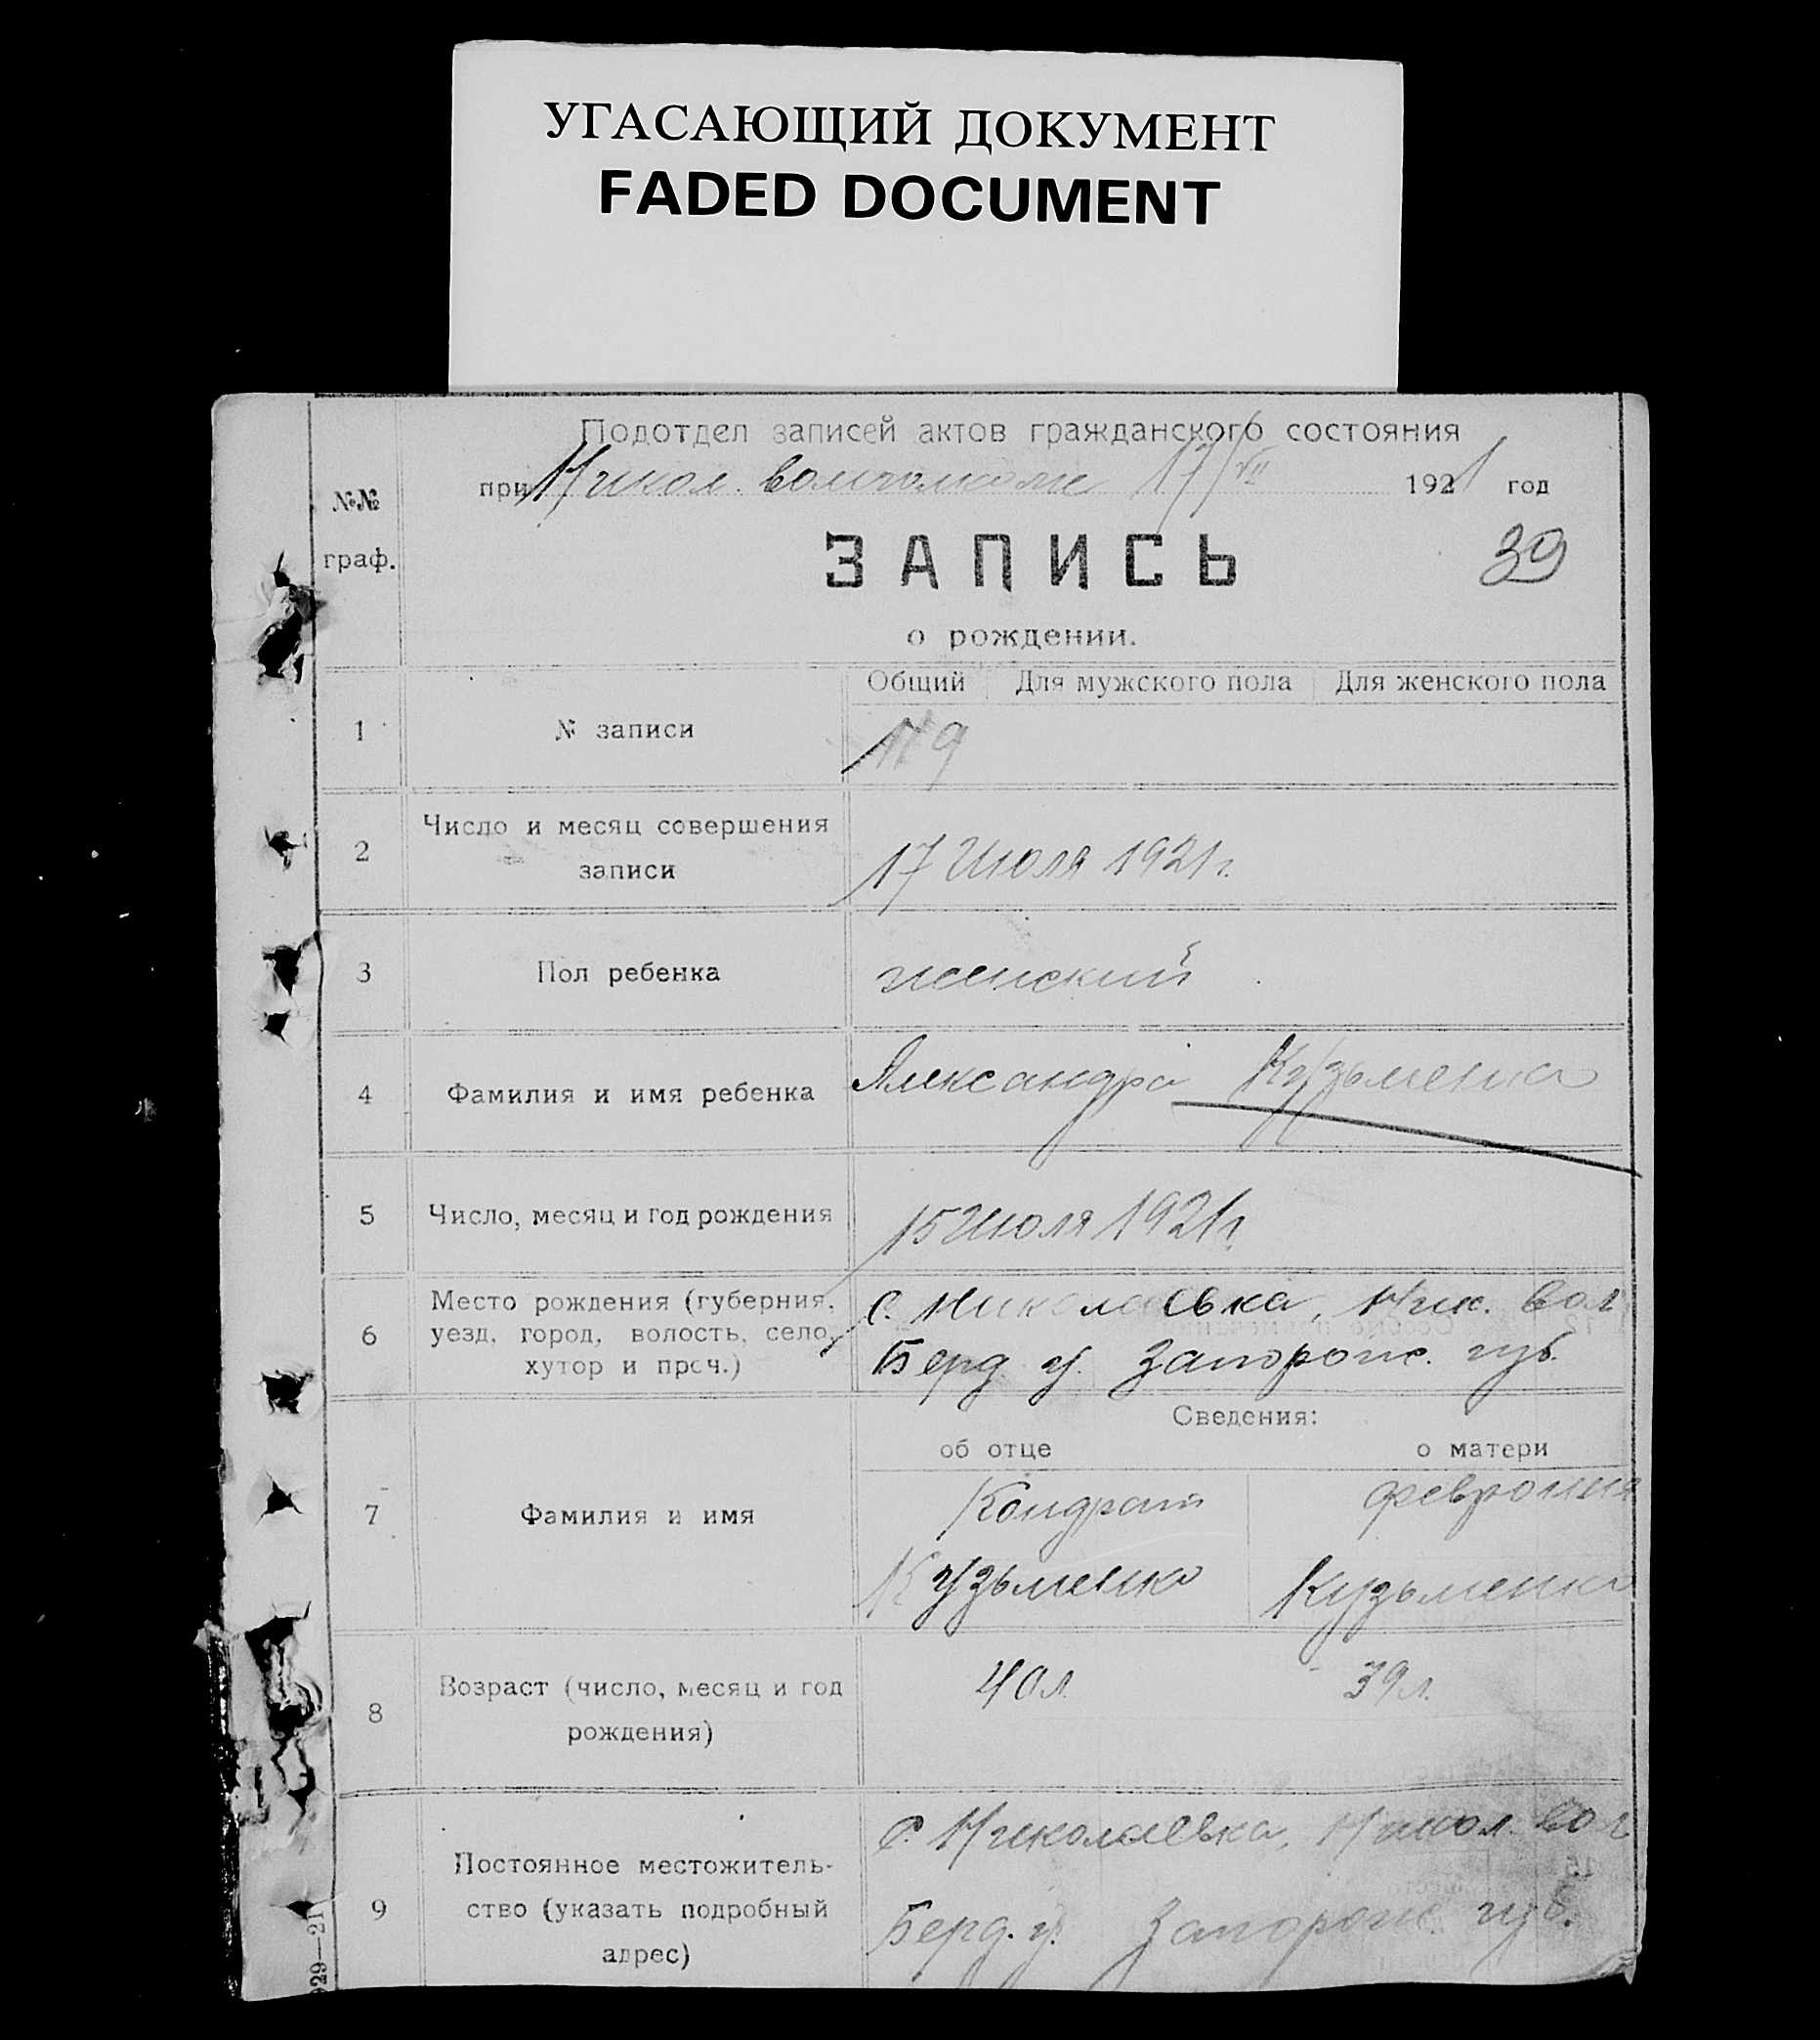 УГАСАЮЩИЙ ДОКУМЕНТ
FADED DOCUMENT
Подотдел записей актов гражданского состояния
при Никол. волисполкоме 17/VII 1921 год
№№
граф.
ЗАПИСЬ
39
о рождении.
Общий Для мужского пола Для женского пола
1 № записи №9
2 Число и месяц совершения
записи
17 Июля 1921 г.
3 Пол ребенка женский
4 Фамилия и имя ребенка Александра Кузьменко
5 Число, месяц и год рождения 15 Июля 1921 г.
6 Место рождения (губерния,
уезд, город, волость, село,
хутор и проч.)
с. Николаевка, Ник. вол
Берд. у. Запорож. губ.
Сведения:
об отце о матери
7 Фамилия и имя
Кондрат Феврония
Кузьменко Кузьменко
8 Возраст (число, месяц и год
рождения)
40 л. 39 л.
9 Постоянное местожитель-
ство (указать подробный
адрес)
с. Николаевка, Никол. вол
Берд. у. Запорож. губ.
929—21